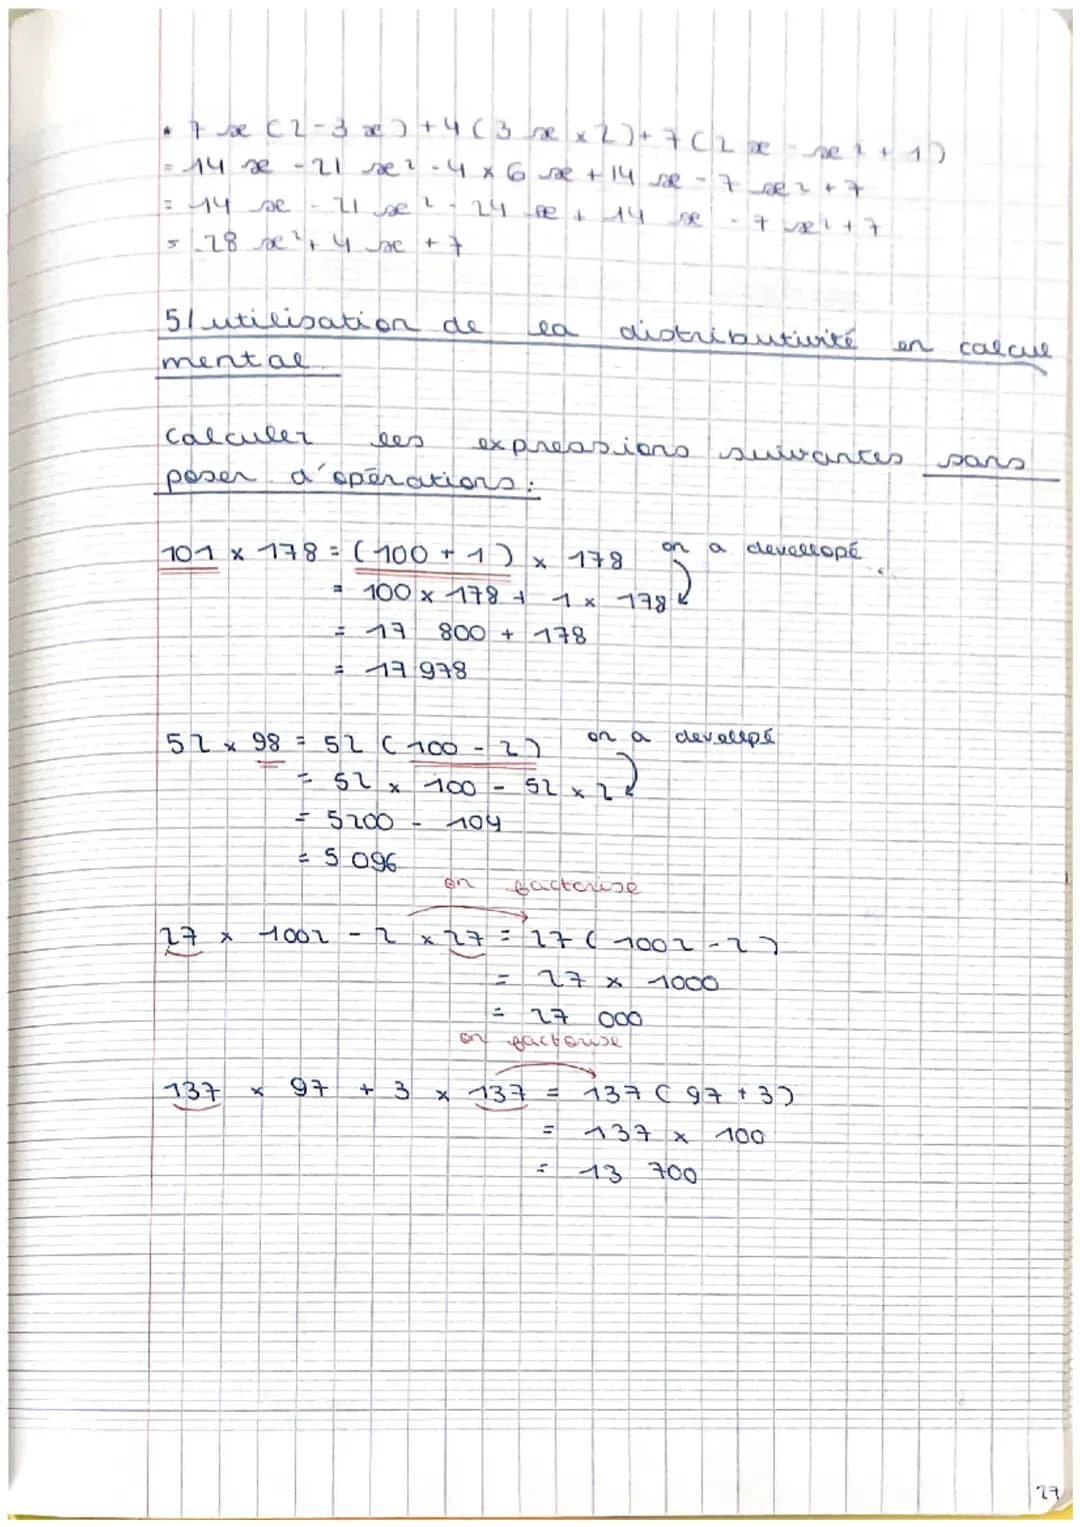 • 7x(2-3x)+4(3x×2)+7(2x-x²+1)
= 14x - 21x² - 4 × 6x + 14x - 7x² + 7
= 14x - 21x² - 24x + 14x - 7x² + 7
= -28x² + 4x + 7
5/ utilisation de la distributivité en calcul
mental
calculer les expressions suivantes sans
poser d'opérations:
101 × 178 = (100 + 1) × 178 on a devellopé
= 100 × 178 + 1 × 178
= 17 800 + 178
= 17 978
52 × 98 = 52 (100 - 2) on a devellpé
= 52 × 100 - 52 × 2
= 5200 - 104
= 5 096
on factorise
27 × 1002 - 2 × 27 = 27 (1002 - 2)
= 27 × 1000
= 27 000
on factorise
137 × 97 + 3 × 137 = 137 (97 + 3)
= 137 × 100
= 13 700
27